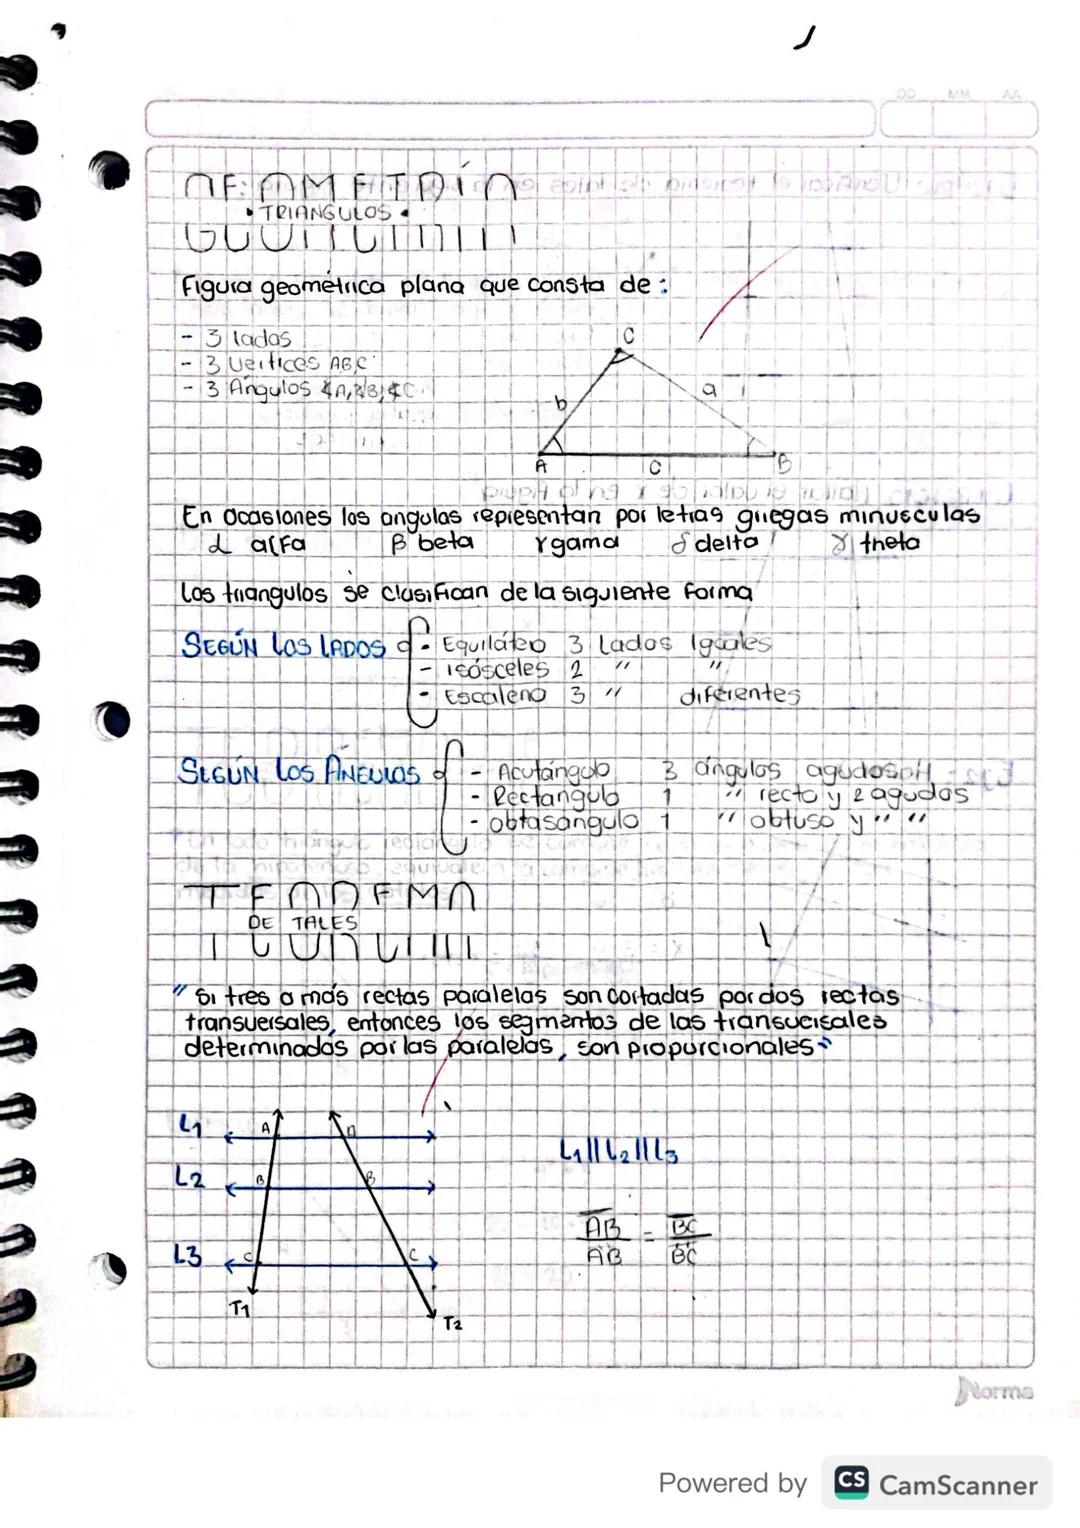 DD MM AA
GEOMETRÍA
• TRIANGULOS •
Figura geométrica plana que consta de :
- 3 lados
- 3 vertices ABC
- 3 Angulos ∡A,∡B,∡C
C
b a
A c B
En Ocasiones los angulos representan por letras griegas minusculas
α alfa β beta γ gama δ delta ɣ theta
Los triangulos se clasifican de la siguiente forma
SEGÚN LOS LADOS - Equilátero 3 Lados Iguales
- isósceles 2 " "
- Escaleno 3 " diferentes
SEGÚN LOS ÁNGULOS - Acutángulo 3 ángulos agudos
- Rectangulo 1 " recto y 2 agudos
- obtasangulo 1 " obtuso y " "
TEOREMA
DE TALES
" Si tres o más rectas paralelas son cortadas por dos rectas
transversales, entonces los segmentos de las transversales
determinados por las paralelas, son proporcionales "
L1 A
L2 B B
L3 C C
T1 T2
L1||L2||L3
AB = BC
A'B' B'C'
Norma
Powered by CS CamScanner